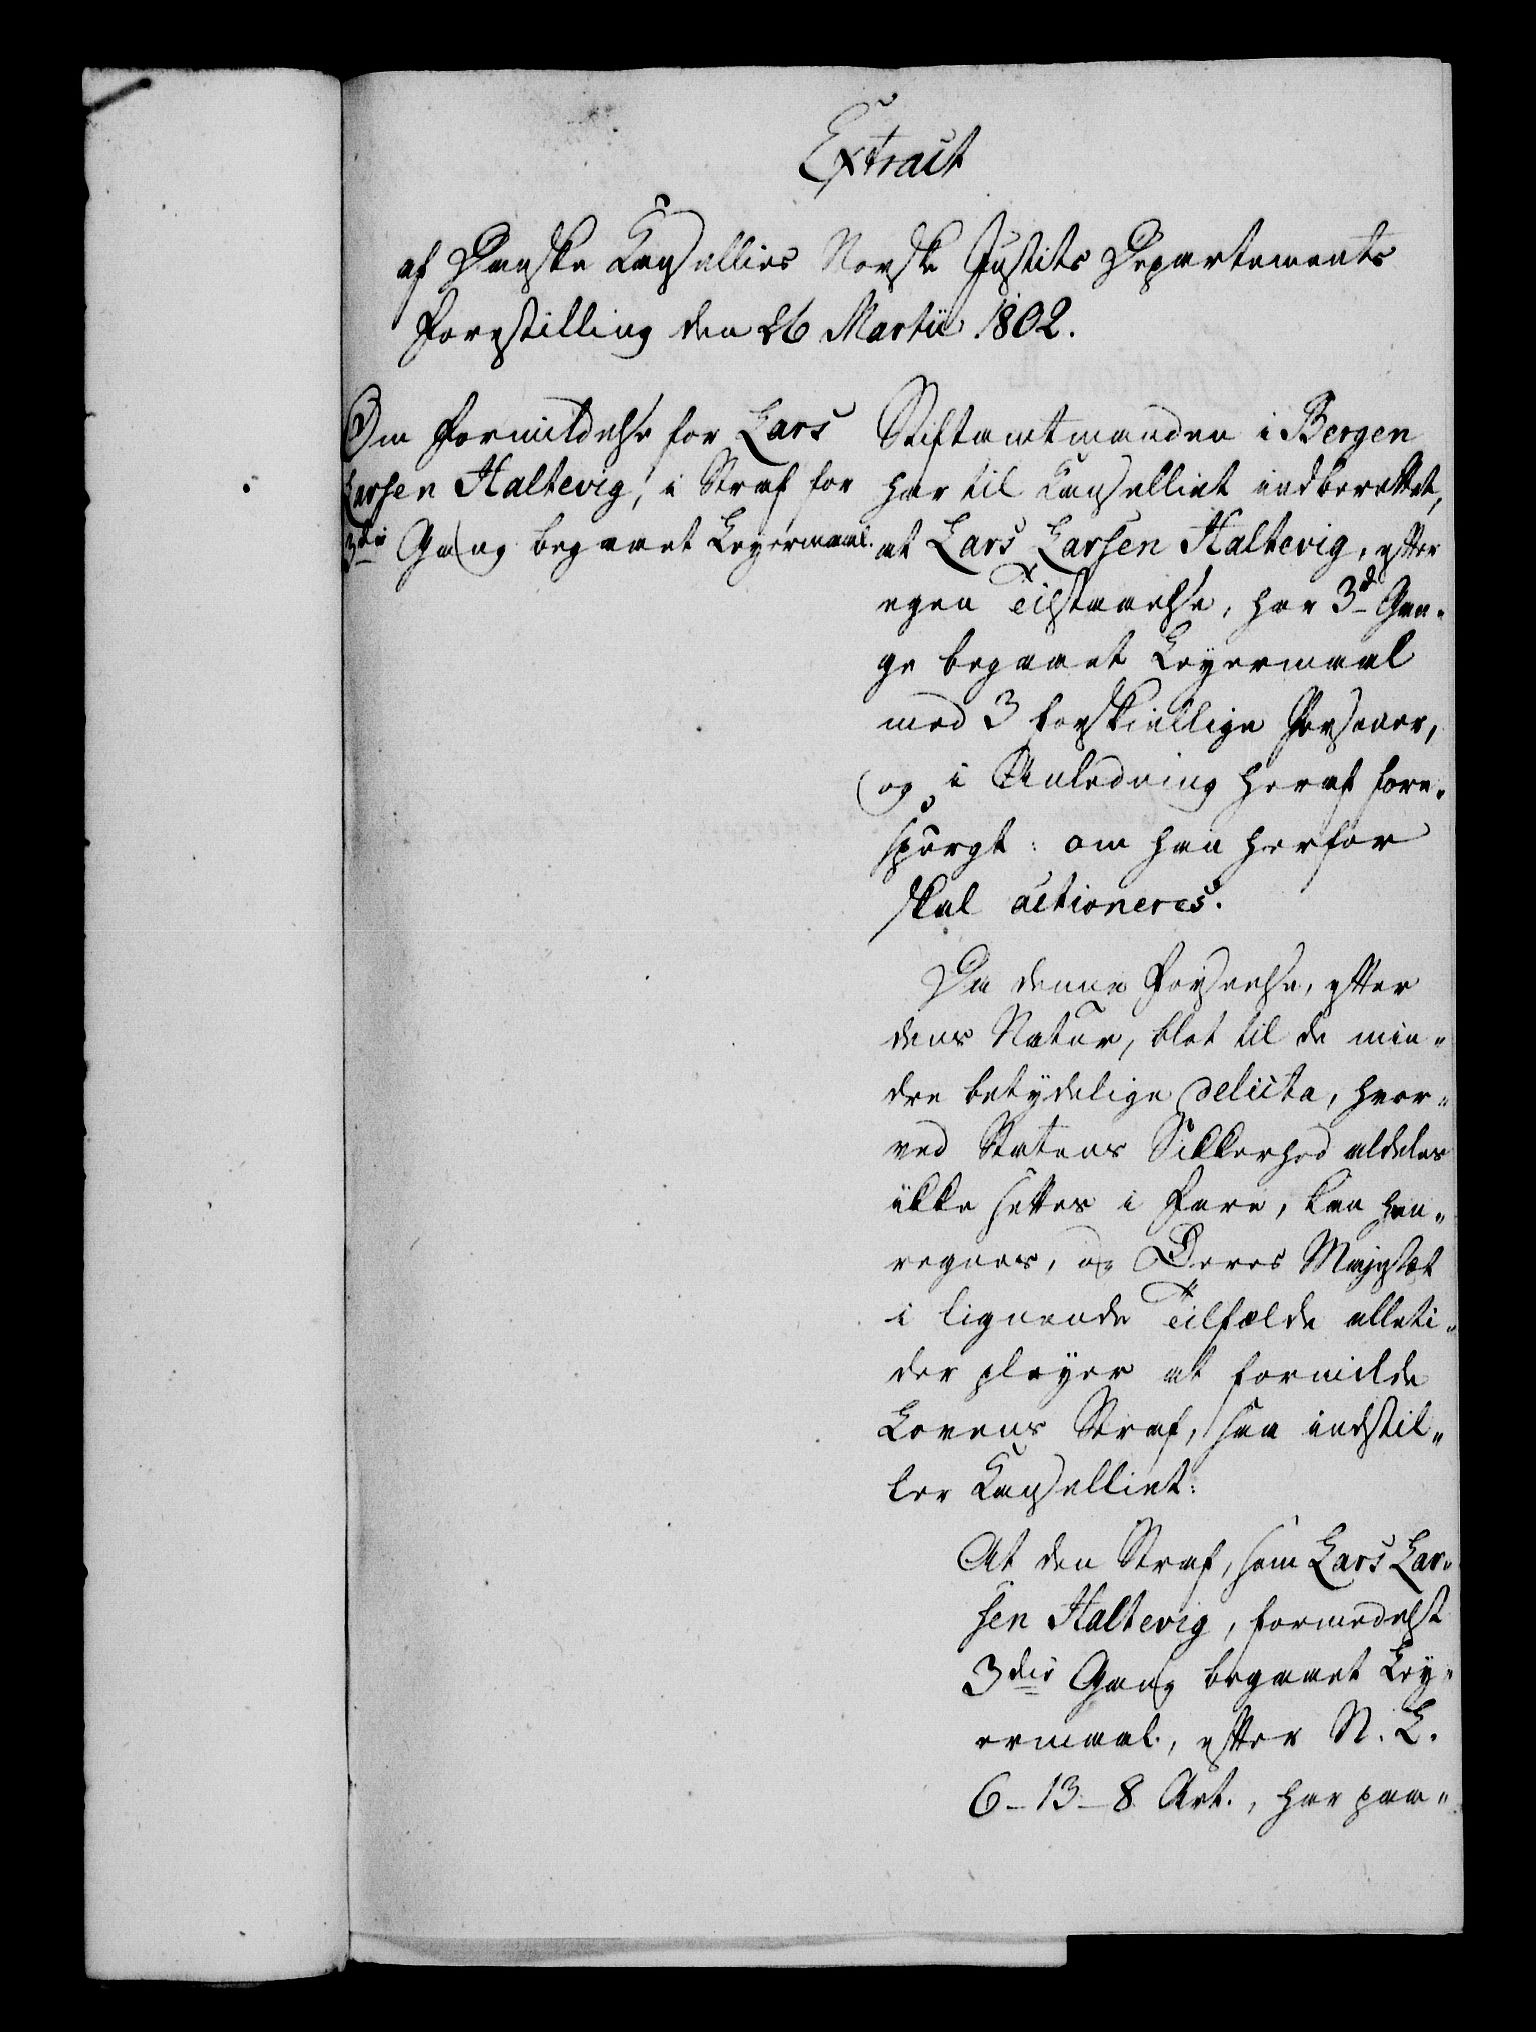 Extract
af Danske Kancellies Norske Justits Departements
Forestilling den 26 Martii 1802.
Om Formildelse for Lars
Larsen Haltevig, i Straf for
3die Gang begaaet Leyermaal.
Stiftamtmanden i Bergen
har til Kancelliet indberettet,
at Lars Larsen Haltevig, efter
egen Tilstaaelse, har 3d Gan-
ge begaaet Leyermaal
med 3 forskiellige Personer,
og i Anledning heraf fore-
spurgt: om han herfor
skal actioneres.
Da denne Forseelse, efter
dens Natur, blot til de min-
dre betydelige delicta, hvor-
ved Statens Sikkerhed aldeles
ikke settes i Fare, kan hen-
regnes, og Deres Majestæt
i lignende Tilfælde alleti-
der pleyer at formilde
Lovens Straf, saa indstil-
ler Kancelliet:
At den Straf, som Lars Lar-
sen Haltevig, formedelst
3die Gang begaaet Ley-
ermaal, efter N. L.
6-13-8 Art., har paa-